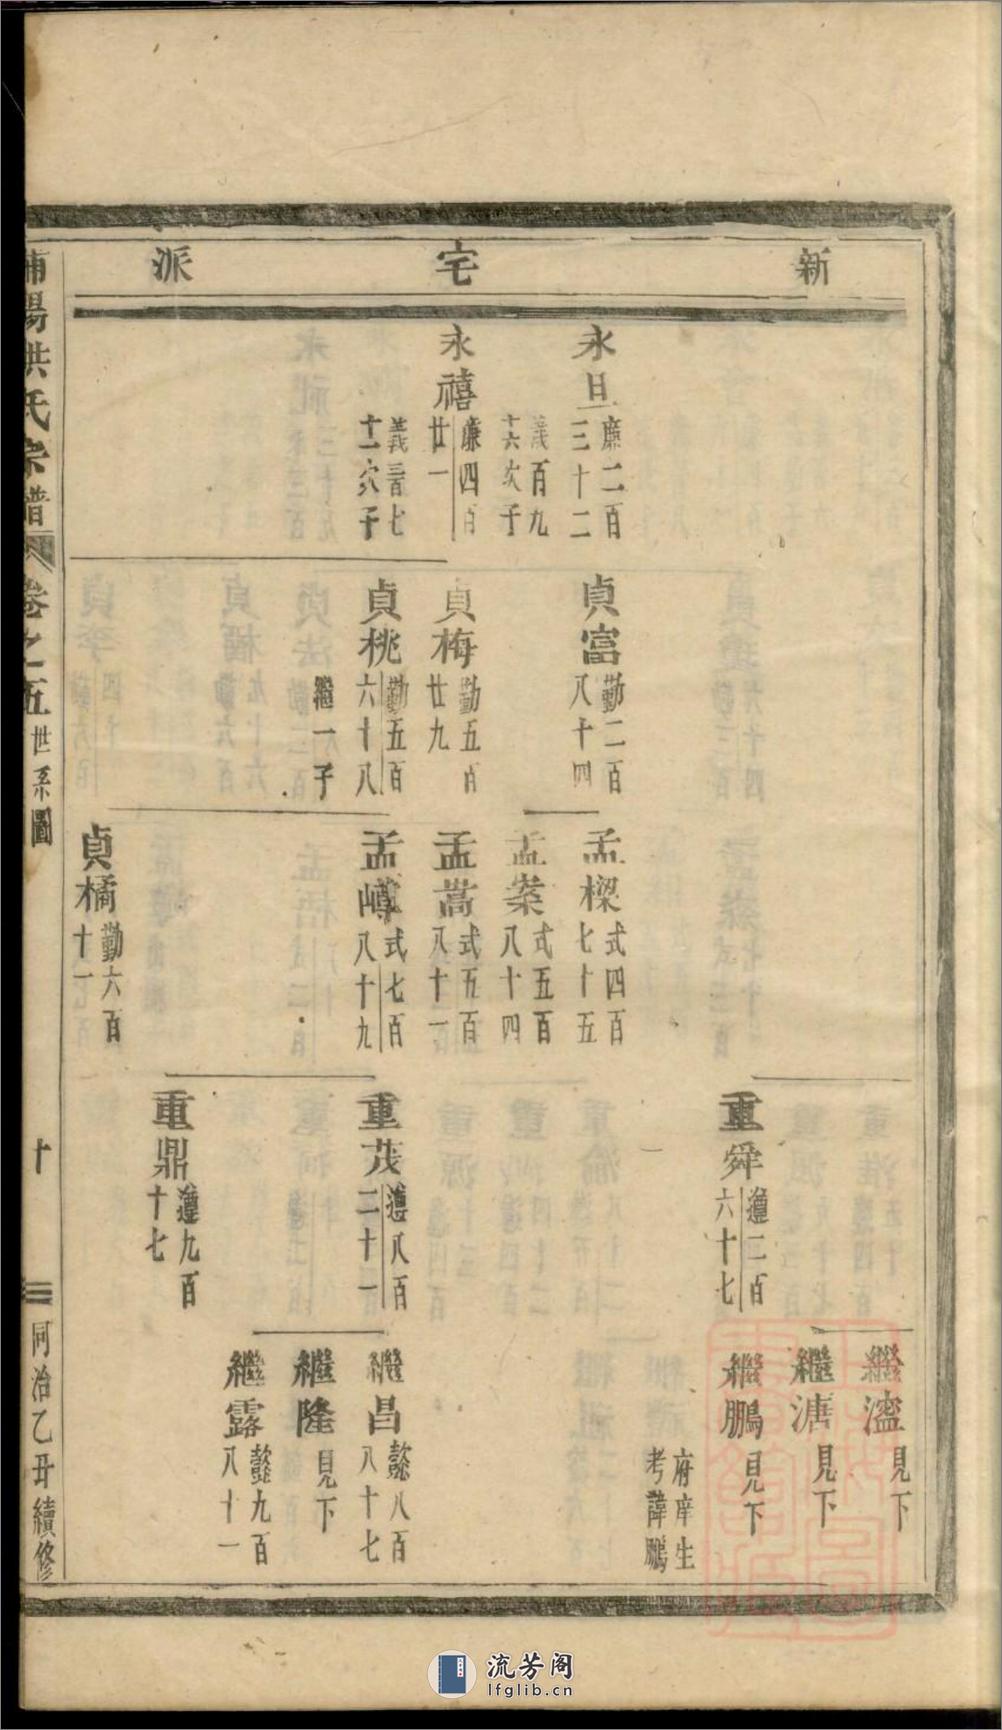 新宅派
永旦 廉二百三十二 義百九十六次子
永禧 廉四百廿一 義三百七十一次子
貞富 勤二百八十四
貞梅 勤五百廿九
貞桃 勤五百六十八 繼一子
孟樑 式四百七十五
孟案 式五百八十四
孟嵩 式五百八十一
孟嶟 式七百八十九
貞橘 勤六百十一
重舜 遵二百六十七
重茂 遵八百二十一
重鼎 遵九百十七
繼㵒 見下
繼溏 見下
繼鵬 見下 府庠生考諱鵬
繼昌 懿八百八十七
繼隆 見下
繼露 懿九百八十一
浦陽洪氏宗譜 卷之五 世系圖 十 同治乙丑續修
流芳阁
lfglib.cn